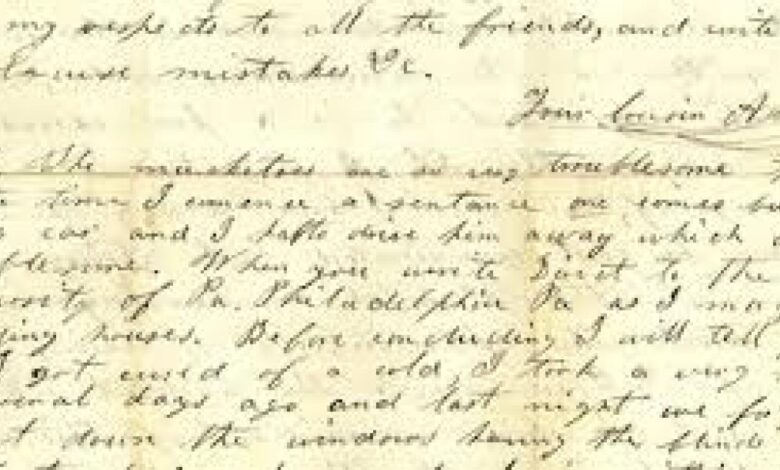 my respects to all the friends, and write
mistakes &c.
Your Cousin A
The musketoes are so very troublesome
time I comence a sentance one comes
ear and I hafto drive him away which
blesome. When you write Direct to the
ersity of Pa. Philadelphia Pa as I may
ging houses. Before concluding I will tell
I got cured of a cold, I took a very
veral days ago and last night we fo
t down the windows having the blinds